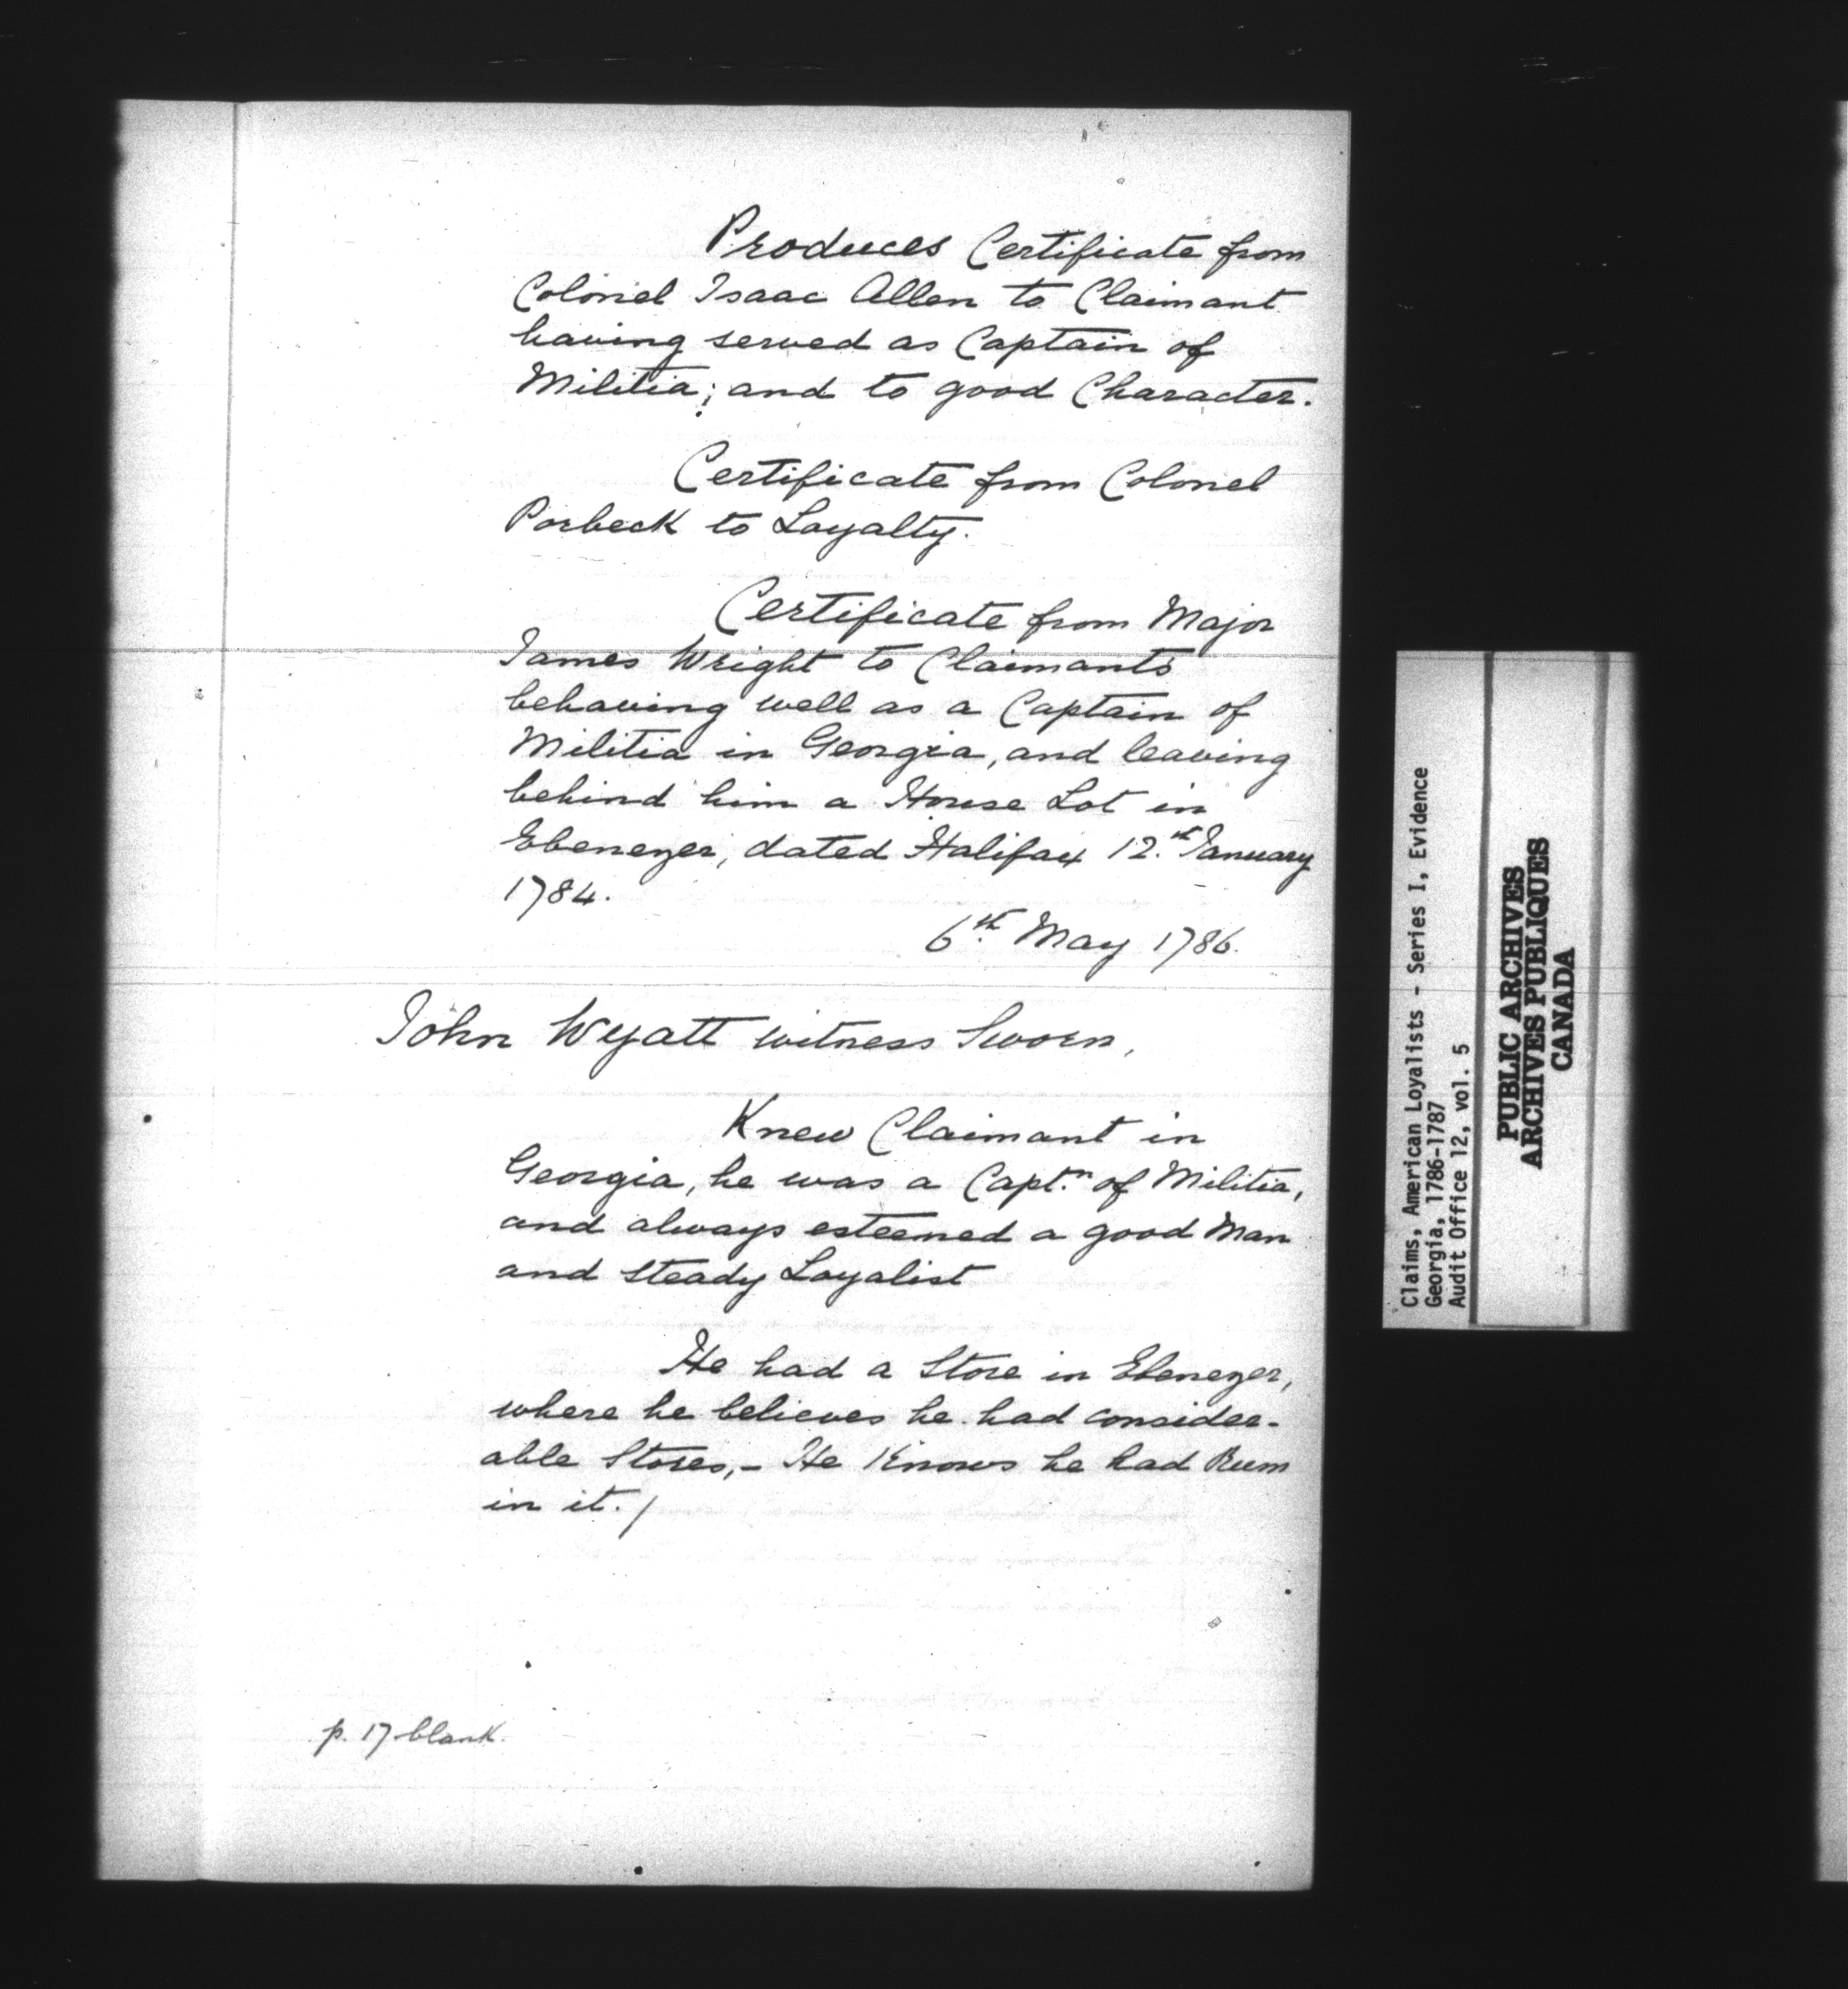 Produces Certificate from
Colonel Isaac Allen to Claimant
having served as Captain of
Militia; and to good Character.
Certificate from Colonel
Porbeck to Loyalty.
Certificate from Major
James Wright to Claimants
behaving well as a Captain of
Militia in Georgia, and leaving
behind him a House Lot in
Ebenezer, dated Halifax 12.th January
1784.
6th May 1786.
John Wyatt witness Sworn,
Knew Claimant in
Georgia, he was a Capt.n of Militia,
and always esteemed a good Man
and steady Loyalist
He had a Store in Ebenezer,
where he believes he had consider-
able Stores,- He Knows he had Rum
in it./
p. 17 blank.
Claims, American Loyalists - Series I, Evidence
Georgia, 1786-1787
Audit Office 12, vol. 5
PUBLIC ARCHIVES
ARCHIVES PUBLIQUES
CANADA